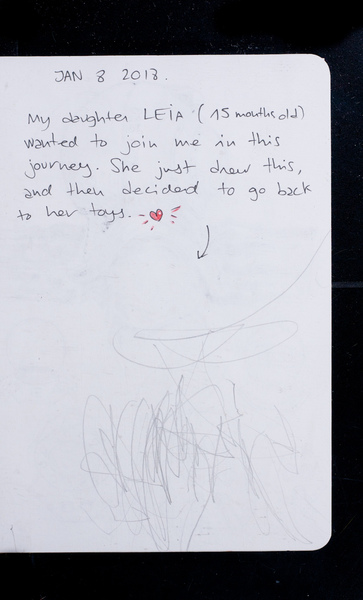 JAN 8 2013.
My daughter LEIA (15 months old)
wanted to join me in this
journey. She just drew this,
and then decided to go back
to her toys.